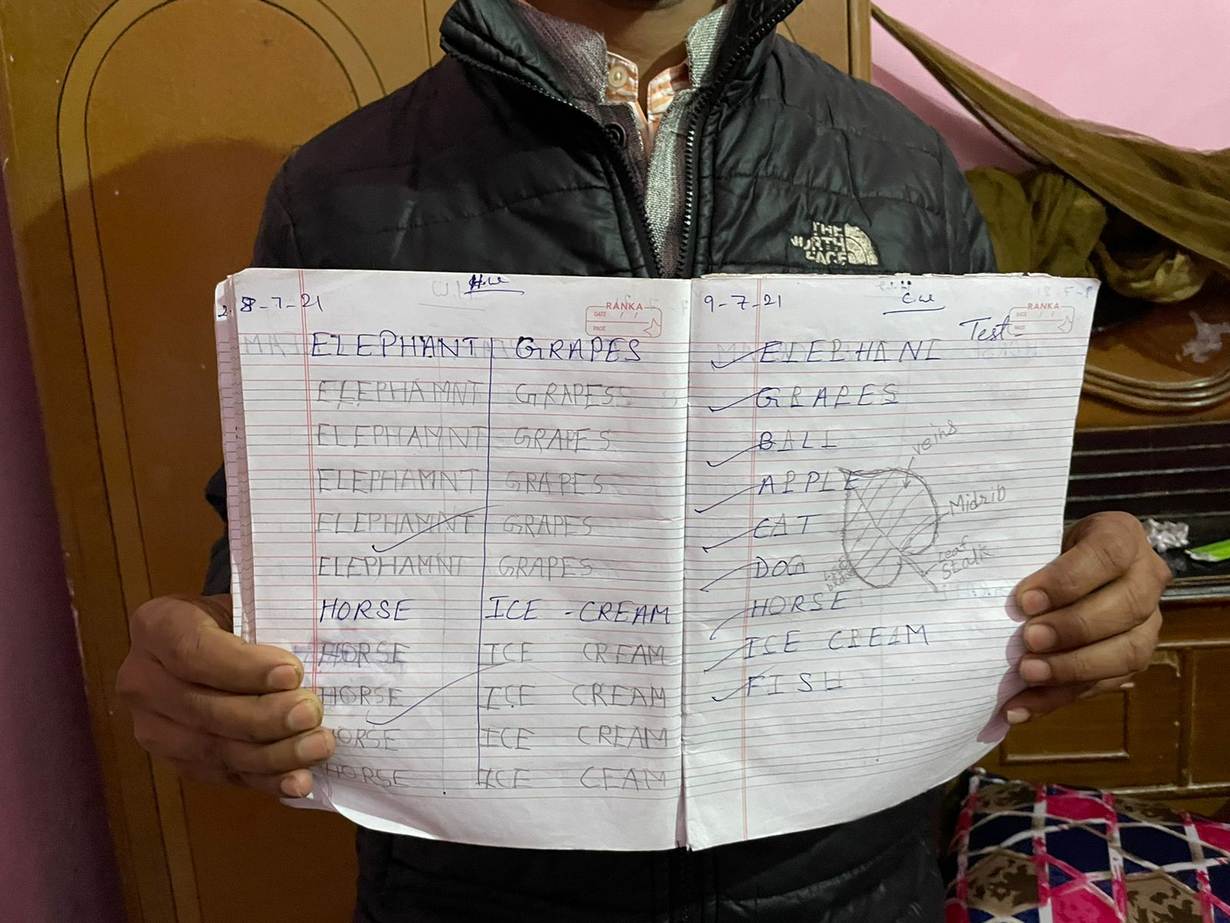 THE
NORTH
FACE
28-7-21
H.W
RANKA
DATE / /
PAGE
ELEPHANT GRAPES
ELEPHAMNT GRAPESS
ELEPHAMNT GRAPES
ELEPHAMNT GRAPES
ELEPHAMNT GRAPES
ELEPHAMNT GRAPES
HORSE ICE - CREAM
HORSE ICE CREAM
HORSE ICE CREAM
HORSE ICE CREAM
HORSE ICE CEAM
9-7-21
C.W
RANKA
DATE / /
PAGE
Test
ELEPHANT
GRAPES
BALL
APPLE
CAT
DOG
HORSE
ICE CREAM
FISH
veins
Midrib
Leaf
Stalk